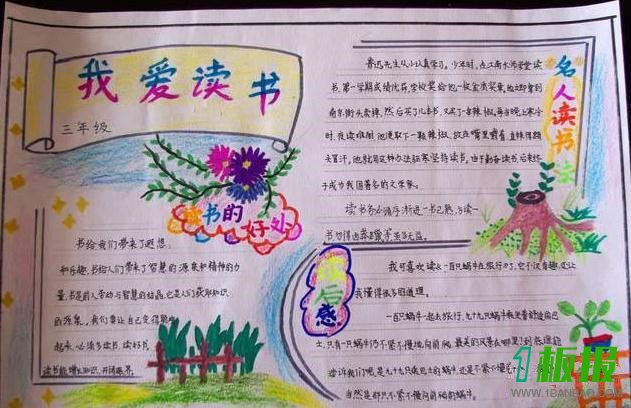 我爱读书
三年级
读书的好处
书给我们带来了遐想
和乐趣.书给人们带来了智慧的源泉和精神的力
量.书是前人劳动与智慧的结晶.它是人们获取知识
的源泉,我们要让自己变得聪明
起来,必须多读书,读好书,
读书能增长知识,开阔眼界
名人读书法
鲁迅先生从小认真学习。少年时,在江南水师学堂读
书,第一学期成绩优异,学校奖给他一枚金质奖章,他立即拿到
南京街头卖掉,然后买了几本书,又买了一串辣椒,每当晚上寒冷
时,夜读难耐,他便取下一颗辣椒,放在嘴里嚼着,直辣得额
头冒汗,他就用这种办法驱寒坚持读书。由于勤奋读书,后来终
于成为我国著名的文学家。
读书务必循序渐进一书已熟,方读一
书,勿得卤莽躐等,虽多无益。
读后感
我可喜欢读《一百只蜗牛去旅行》了,它不仅有趣,还让
我懂得很多的道理。
一百只蜗牛一起去旅行,九十九只蜗牛
,只有一只蜗牛仍不紧不慢地向前爬,最美的风景在哪里?到底谁能
告诉我们呢,是九十九只疾驰的蜗牛,还是不紧不慢
当然是那只不紧不慢向前爬的蜗牛。
1板报
WWW.1BANBAO.COM